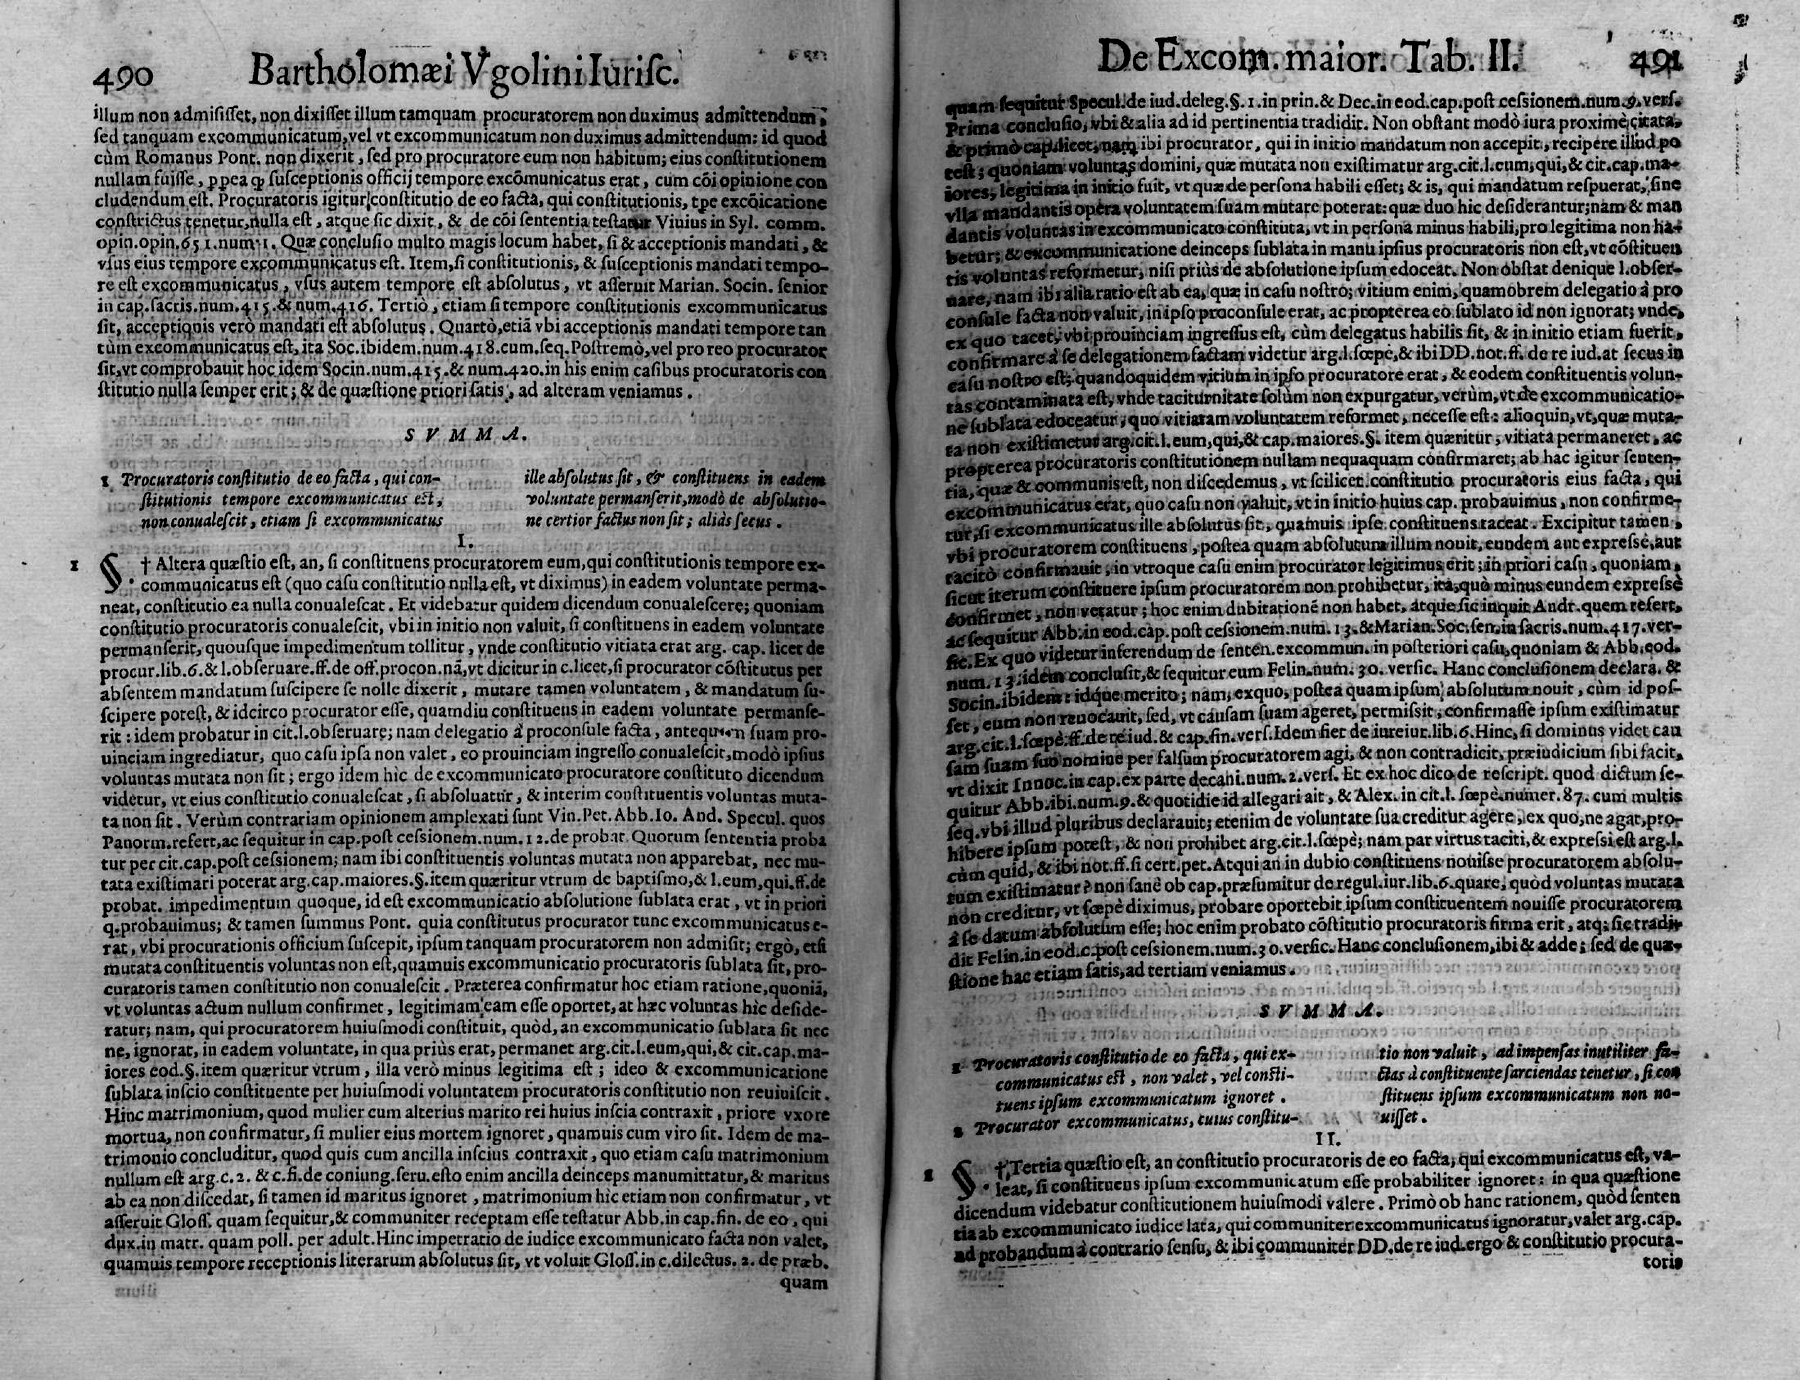 490 Bartholomæi Vgolini Iurisc.
illum non admisisset, non dixisset illum tamquam procuratorem non duximus admittendum,
sed tanquam excommunicatum, vel vt excommunicatum non duximus admittendum: id quod
cùm Romanus Pont. non dixerit, sed pro procuratore eum non habitum; eius constitutionem
nullam fuisse, ꝓpea ꝙ susceptionis officij tempore excõmunicatus erat, cum cõi opinione con
cludendum est. Procuratoris igitur constitutio de eo facta, qui constitutionis, tpe excõicatione
constrictus tenetur, nulla est, atque sic dixit, & de cõi sententia testatur Viuius in Syl. comm.
opin. opin. 651. num. 1. Quæ conclusio multo magis locum habet, si & acceptionis mandati, &
vsus eius tempore excommunicatus est. Item, si constitutionis, & susceptionis mandati tempo-
re est excommunicatus, vsus autem tempore est absolutus, vt asseruit Marian. Socin. senior
in cap. sacris. num. 415. & num. 416. Tertiò, etiam si tempore constitutionis excommunicatus
sit, acceptionis verò mandati est absolutus. Quartò, etiã vbi acceptionis mandati tempore tan
tùm excommunicatus est, ita Soc. ibidem. num. 418. cum. seq. Postremò, vel pro reo procurator
sit, vt comprobauit hoc idem Socin. num. 415. & num. 420. in his enim casibus procuratoris con
stitutio nulla semper erit; & de quæstione priori satis, ad alteram veniamus.
SVMMA.
1 Procuratoris constitutio de eo facta, qui con-
stitutionis tempore excommunicatus est,
non conualescit, etiam si excommunicatus
ille absolutus sit, & constituens in eadem
voluntate permanserit, modò de absolutio-
ne certior factus non sit; aliàs secus.
I.
1 §. † Altera quæstio est, an, si constituens procuratorem eum, qui constitutionis tempore ex-
communicatus est (quo casu constitutio nulla est, vt diximus) in eadem voluntate perma-
neat, constitutio ea nulla conualescat. Et videbatur quidem dicendum conualescere; quoniam
constitutio procuratoris conualescit, vbi in initio non valuit, si constituens in eadem voluntate
permanserit, quousque impedimentum tollitur, vnde constitutio vitiata erat arg. cap. licet de
procur. lib. 6. & l. obseruare. ff. de off. procon. nã, vt dicitur in c. licet, si procurator cõstitutus per
absentem mandatum suscipere se nolle dixerit, mutare tamen voluntatem, & mandatum su-
scipere potest, & idcirco procurator esse, quamdiu constituens in eadem voluntate permanse-
rit: idem probatur in cit. l. obseruare; nam delegatio à proconsule facta, antequam suam pro-
uinciam ingrediatur, quo casu ipsa non valet, eo prouinciam ingresso conualescit, modò ipsius
voluntas mutata non sit; ergo idem hic de excommunicato procuratore constituto dicendum
videtur, vt eius constitutio conualescat, si absoluatur, & interim constituentis voluntas muta-
ta non sit. Verùm contrariam opinionem amplexati sunt Vin. Pet. Abb. Io. And. Specul. quos
Panorm. refert, ac sequitur in cap. post cessionem. num. 12. de probat. Quorum sententia proba
tur per cit. cap. post cessionem; nam ibi constituentis voluntas mutata non apparebat, nec mu-
tata existimari poterat arg. cap. maiores. §. item quæritur vtrum de baptismo, & l. eum, qui. ff. de
probat. impedimentum quoque, id est excommunicatio absolutione sublata erat, vt in priori
q. probauimus; & tamen summus Pont. quia constitutus procurator tunc excommunicatus e-
rat, vbi procurationis officium suscepit, ipsum tanquam procuratorem non admisit; ergò, etsi
mutata constituentis voluntas non est, quamuis excommunicatio procuratoris sublata sit, pro-
curatoris tamen constitutio non conualescit. Præterea confirmatur hoc etiam ratione, quoniã,
vt voluntas actum nullum confirmet, legitimam eam esse oportet, at hæc voluntas hìc deside-
ratur; nam, qui procuratorem huiusmodi constituit, quòd, an excommunicatio sublata sit nec
ne, ignorat, in eadem voluntate, in qua priùs erat, permanet arg. cit. l. eum, qui, & cit. cap. ma-
iores eod. §. item quæritur vtrum, illa verò minus legitima est; ideo & excommunicatione
sublata inscio constituente per huiusmodi voluntatem procuratoris constitutio non reuiuiscit.
Hinc matrimonium, quod mulier cum alterius marito rei huius inscia contraxit, priore vxore
mortua, non confirmatur, si mulier eius mortem ignoret, quamuis cum viro sit. Idem de ma-
trimonio concluditur, quod quis cum ancilla inscius contraxit, quo etiam casu matrimonium
nullum est arg. c. 2. & c. fi. de coniung. seru. esto enim ancilla deinceps manumittatur, & maritus
ab ea non discedat, si tamen id maritus ignoret, matrimonium hic etiam non confirmatur, vt
asseruit Gloss. quam sequitur, & communiter receptam esse testatur Abb. in cap. fin. de eo, qui
dux. in matr. quam poll. per adult. Hinc impetratio de iudice excommunicato facta non valet,
quamuis tempore receptionis literarum absolutus sit, vt voluit Gloss. in c. dilectus. 2. de præb.
quam
De Excom. maior. Tab. II. 491
quam sequitur Specul. de iud. deleg. §. 1. in prin. & Dec. in eod. cap. post cessionem. num. 9. vers.
Prima conclusio, vbi & alia ad id pertinentia tradidit. Non obstant modò iura proximè citata,
& primò cap. licet, nam ibi procurator, qui in initio mandatum non accepit, recipere illud po
test; quoniam voluntas domini, quæ mutata non existimatur arg. cit. l. eum, qui, & cit. cap. ma-
iores, legitima in initio fuit, vt quæ de persona habili esset; & is, qui mandatum respuerat, sine
vlla mandantis opera voluntatem suam mutare poterat: quæ duo hic desiderantur; nam & man
dantis voluntas in excommunicato constituta, vt in persona minus habili, pro legitima non ha-
betur; & excommunicatione deinceps sublata in manu ipsius procuratoris non est, vt cõstituen
tis voluntas reformetur, nisi priùs de absolutione ipsum edoceat. Non obstat denique l. obser-
uare, nam ibi alia ratio est ab ea, quæ in casu nostro; vitium enim, quamobrem delegatio à pro
consule facta non valuit, in ipso proconsule erat, ac propterea eo sublato id non ignorat; vnde,
ex quo tacet, vbi prouinciam ingressus est, cùm delegatus habilis sit, & in initio etiam fuerit,
confirmare à se delegationem factam videtur arg. l. sœpè, & ibi DD. not. ff. de re iud. at secus in
casu nostro est; quandoquidem vitium in ipso procuratore erat, & eodem constituentis volun-
tas contaminata est, vnde taciturnitate solùm non expurgatur, verùm, vt de excommunicatio-
ne sublata edoceatur, quo vitiatam voluntatem reformet, necesse est: alioquin, vt, quæ muta-
ta non existimetur arg. cit. l. eum, qui, & cap. maiores. §. item quæritur, vitiata permaneret, ac
propterea procuratoris constitutionem nullam nequaquam confirmaret; ab hac igitur senten-
tia, quæ & communis est, non discedemus, vt scilicet constitutio procuratoris eius facta, qui
excommunicatus erat, quo casu non valuit, vt in initio huius cap. probauimus, non confirme-
tur, si excommunicatus ille absolutus sit, quamuis ipse constituens taceat. Excipitur tamen,
vbi procuratorem constituens, postea quam absolutum illum nouit, eundem aut expressè, aut
tacitò confirmauit, in vtroque casu enim procurator legitimus erit; in priori casu, quoniam,
sicut iterum constituere ipsum procuratorem non prohibetur, ita, quò minus eundem expressè
confirmet, non vetatur; hoc enim dubitationẽ non habet, atque sic inquit Andr. quem refert,
ac sequitur Abb. in eod. cap. post cessionem. num. 13. & Marian. Soc. sen. in sacris. num. 417. ver-
sic. Ex quo videtur inferendum de senten. excommun. in posteriori casu, quoniam & Abb. eod.
num. 13. idem conclusit, & sequitur eum Felin. num. 30. versic. Hanc conclusionem declara. &
Socin. ibidem: idque merito; nam, exquo, postea quam ipsum absolutum nouit, cùm id pos-
set, eum non reuocauit, sed, vt causam suam ageret, permissit, confirmasse ipsum existimatur
arg. cit. l. sœpè. ff. de re iud. & cap. fin. vers. Idem fiet de iureiur. lib. 6. Hinc, si dominus videt cau
sam suam suo nomine per falsum procuratorem agi, & non contradicit, præiudicium sibi facit,
vt dixit Innoc. in cap. ex parte decani. num. 2. vers. Et ex hoc dico de rescript. quod dictum se-
quitur Abb. ibi num. 9. & quotidie id allegari ait, & Alex. in cit. l. sœpè. numer. 87. cum multis
seq. vbi illud pluribus declarauit; etenim de voluntate sua creditur agere, ex quo, ne agat, pro-
hibere ipsum potest, & non prohibet arg. cit. l. sœpè; nam par virtus taciti, & expressi est arg. l.
cùm quid, & ibi not. ff. si cert. pet. Atqui an in dubio constituens nouisse procuratorem absolu-
tum existimatur? non sanè ob cap. præsumitur de regul. iur. lib. 6. quare, quòd voluntas mutata
non creditur, vt sœpè diximus, probare oportebit ipsum constituentem nouisse procuratorem
à se datum absolutum esse; hoc enim probato cõstitutio procuratoris firma erit, atq; sic tradi-
dit Felin. in eod. c. post cessionem. num. 30. versic. Hanc conclusionem, ibi & adde; sed de quæ-
stione hac etiam satis, ad tertiam veniamus.
SVMMA.
1 Procuratoris constitutio de eo facta, qui ex-
communicatus est, non valet, vel consti-
tuens ipsum excommunicatum ignoret.
2 Procurator excommunicatus, cuius constitu-
tio non valuit, ad impensas inutiliter fa-
ctas à constituente sarciendas tenetur, si con
stituens ipsum excommunicatum non no-
uisset.
II.
1 §. † Tertia quæstio est, an constitutio procuratoris de eo facta, qui excommunicatus est, va-
leat, si constituens ipsum excommunicatum esse probabiliter ignoret: in qua quæstione
dicendum videbatur constitutionem huiusmodi valere. Primò ob hanc rationem, quòd senten
tia ab excommunicato iudice lata, qui communiter excommunicatus ignoratur, valet arg. cap.
ad probandum à contrario sensu, & ibi communiter DD. de re iud. ergo & constitutio procura-
toris